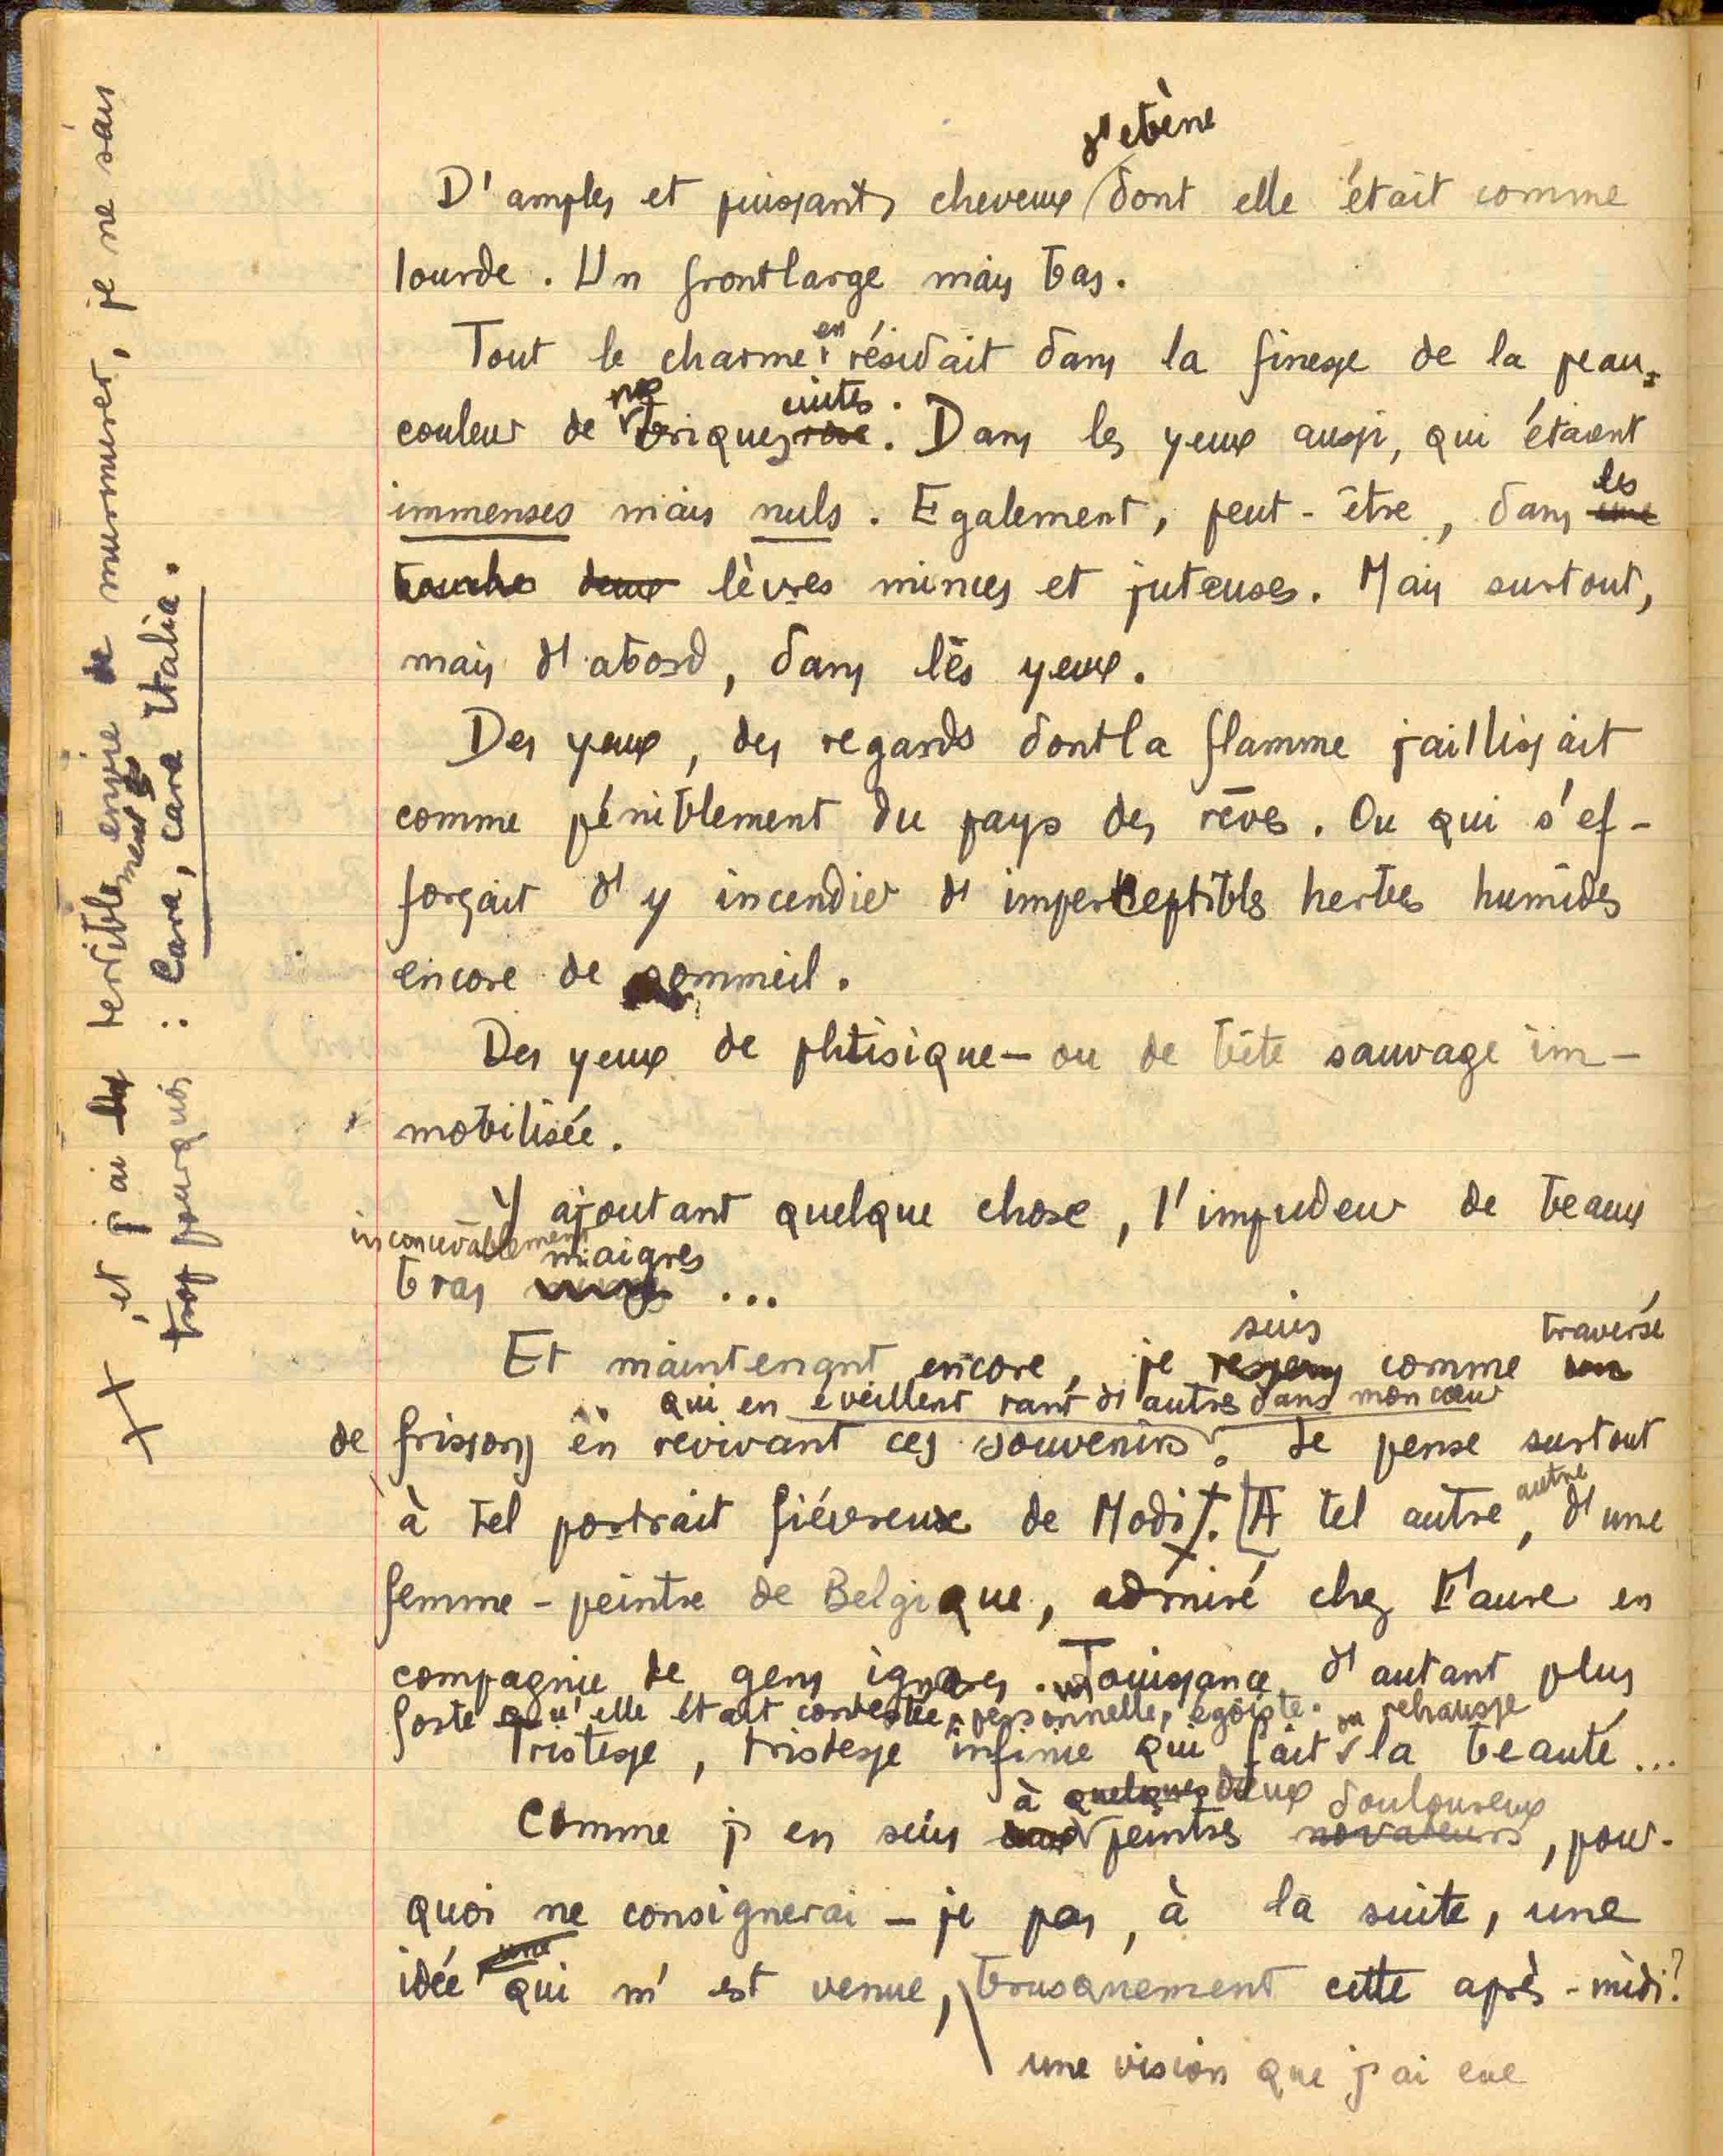 d'ebène
D'amples et puissants cheveux dont elle était comme
lourde. Un front large mais bas.
en
Tout le charme résidait dans la finesse de la peau,
cuites.
couleur de briques rose. Dans les yeux aussi, qui étaient
les
immenses mais nuls. Egalement, peut-être, dans une
bouche deux lèvres minces et juteuses. Mais surtout,
mais d'abord, dans les yeux.
Des yeux, des regards dont la flamme jaillissait
comme péniblement du pays des rêves. Ou qui s'ef-
forçait d'y incendier d'imperceptibles herbes humides
encore de sommeil.
Des yeux de phtisique - ou de bête sauvage im-
mobilisée.
Y ajoutant quelque chose, l'impudeur de beaux
inconcevablement maigres
bras ...
suis traversé
Et maintenant encore, je ressens comme un
qui en éveillent tant d'autres dans mon cœur
de frissons en revivant ces souvenirs. Je pense surtout
autre
à tel portrait fiévreux de Modi X. [A tel autre, d'une
femme-peintre de Belgique, admiré chez Faure en
compagnie de gens ignares. Jouissance d'autant plus
forte qu'elle était contestée, personnelle, égoïste. ou rehausse
Tristesse, tristesse infinie qui fait la beauté...
à quelques deux douloureux
Comme j'en suis peintres novateurs, pour-
quoi ne consignerai-je pas, à la suite, une
une
idée qui m'est venue, brusquement cette après-midi?
une vision que j'ai eue
X, et j'ai terriblement envie de murmurer, je ne sais
trop pourquoi : Cara, cara Italia.